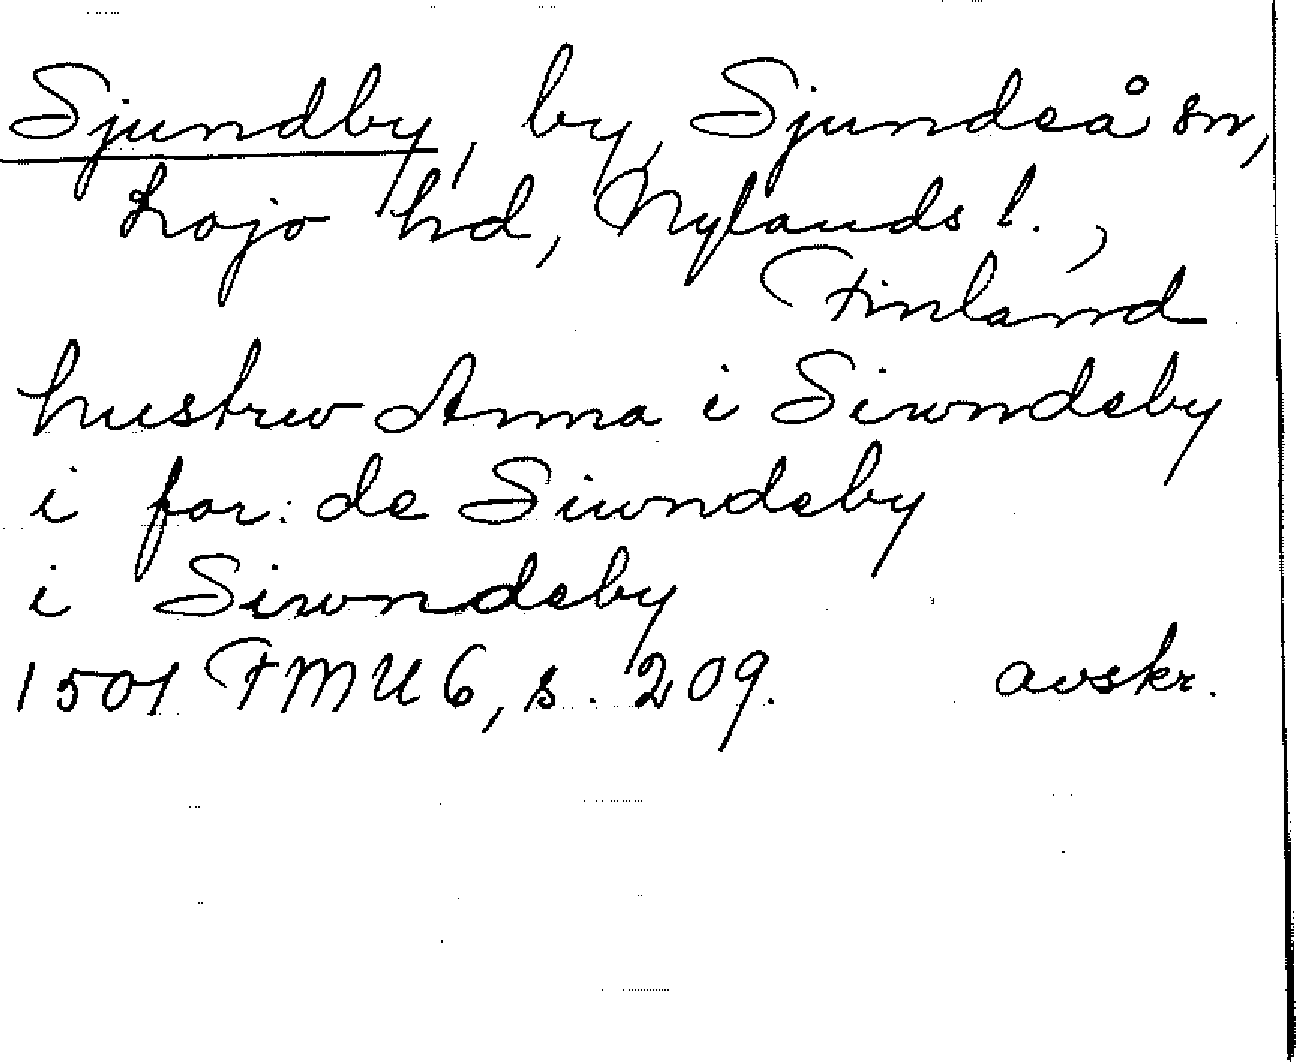 Sjundby, by, Sjundeå sn,
Lojo hd, Nylands l.,
Finland
hustrw Anna i Siwndeby
i for: de Siwndeby
i Siwndeby
1501 FMU 6, s. 209. avskr.